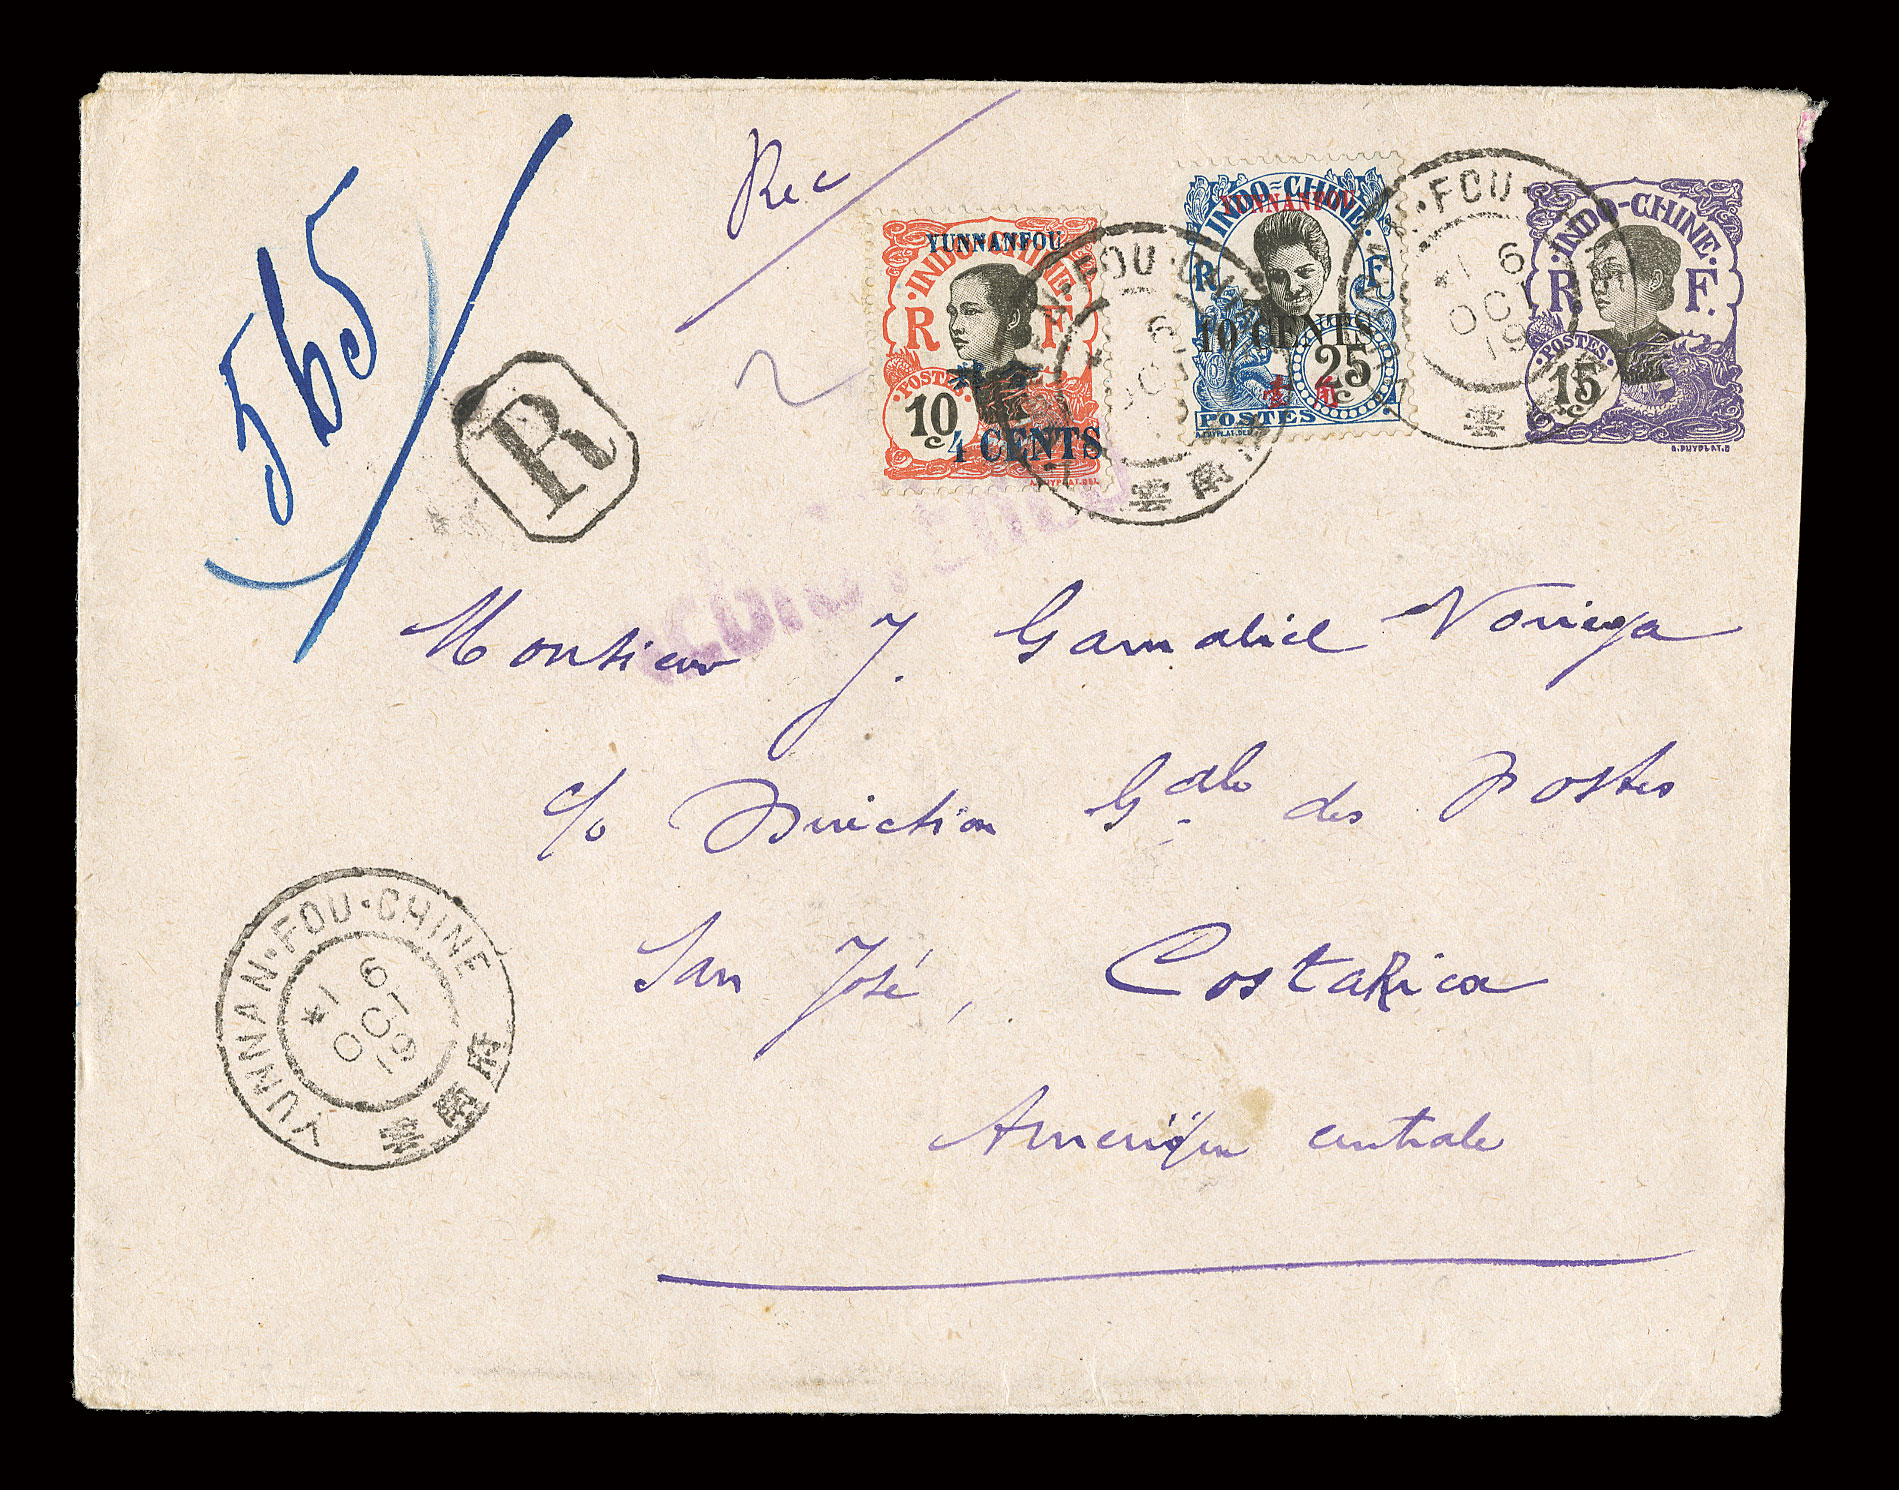 565
Rec
R
YUNNANFOU
INDO-CHINE
R F
POSTES
10 c
4 CENTS
A. PUYPLAT. DEL.
YUNNANFOU
INDO-CHINE
R F
10 CENTS
25 c
POSTES
INDO-CHINE
R. F.
POSTES
15 c
A. PUYPLAT. D
FOU CHINE
6
OC
雲南
FOU
*1 6
OCT
19
雲
Monsieur J. Gamaliel Noriega
c/o Direction Gale des Postes
San José, Costa Rica
Amérique centrale
YUNNAN-FOU · CHINE
*1 6
OCT
19
雲南府